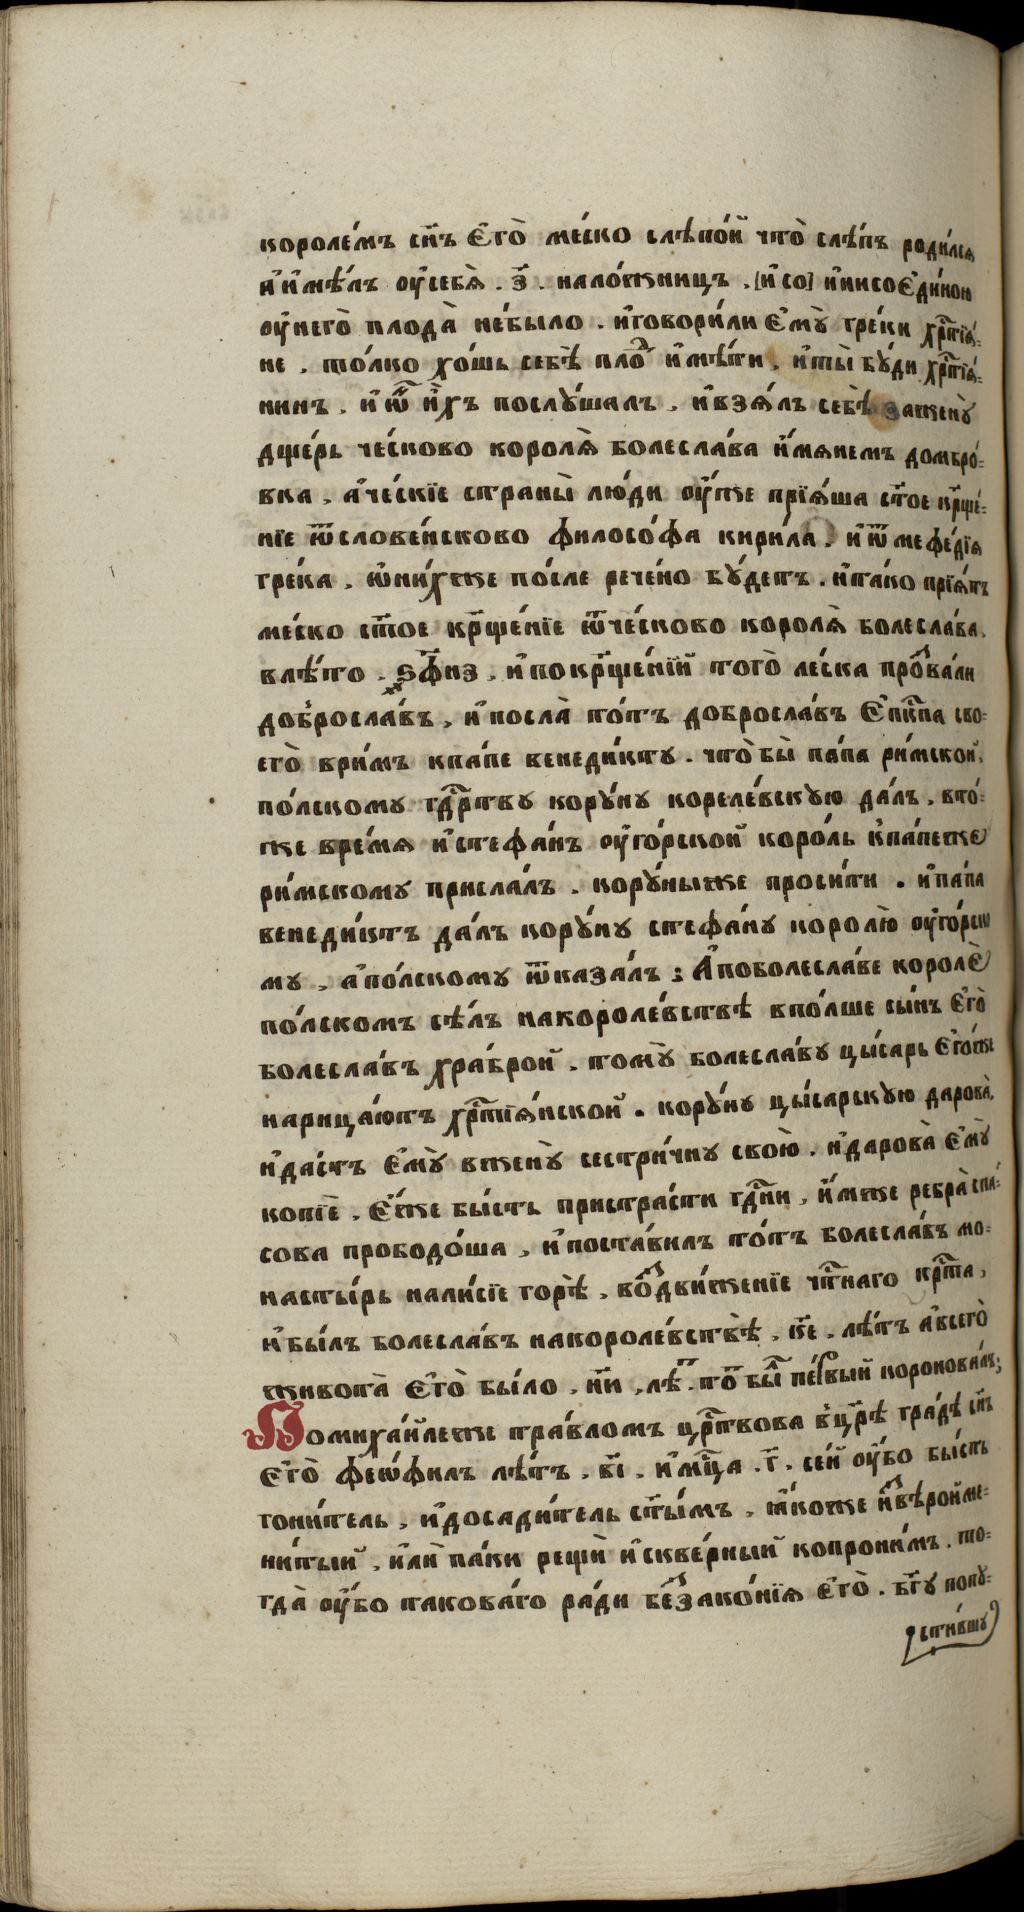 короле́мъ сн҃ъ є҆гѡ̀ ме́ско слѣпо́й что̀ слѣ́пъ роди́лся
и҆ и҆мѣ́лъ оу҆себѧ̀ . з҃ . нало́жницъ . [и҆ со] и҆ нисоє҆ди́ною
оу҆него̀ плода̀ не́было . и҆говори́ли є҆мꙋ̀ гре́ки хрⷭ҇тїѧ́-
не . то́лко хо́шь себѣ̀ пло́ⷣ и҆мѣ́ти , и҆ты̀ бꙋ́ди хрⷭ҇тїѧ́-
нинъ . и҆ ѿ и҆́хъ послꙋ́шалъ . и҆взѧ́лъ себѣ̀ заженꙋ̀
дще́рь че́сково королѧ̀ болесла́ва и҆́мянемъ домбро́-
вка , а҆че́скїе страны̀ лю́ди оу҆́же прїѧ́ша ст҃о́е крⷭ҇ще́-
нїе ѿслове́нсково філосо́фа кири́ла . и҆ ѿмефе́дїя
гре́ка , ѡ҆ни́хже по́сле рече́но бꙋ́детъ . и҆та́ко прїѧ́тъ
ме́ско ст҃о́е крⷭ҇ще́нїе ѿче́сково королѧ̀ болесла́ва .
влѣ́то . ѕ҃физ . и҆ покрⷭ҇ще́нїи того̀ ле́ска про́ⷥвали
доброслáвъ , и҆ посла̀ то́тъ доброслáвъ є҆пкⷭ҇па сво-
его̀ ври́мъ кпа́пе венеди́кту . что́бы̀ па́па ри́мской ,
по́лскому гдⷭ҇рству корꙋ́ну короле́вскую да́лъ . вто́-
же вре́мя и҆стефа́нъ оу҆го́рской коро́ль кпа́пеже
ри́мскому присла́лъ . корꙋ́ныже проси́ти . и҆па́па
венеди́ктъ да́лъ корꙋ́ну стефа́ну королю̀ оу҆го́рско
му , а҆по́лскому ѿказа́лъ : А҆поболесла́ве королѐ
по́лскомъ сѣ́лъ накороле́вствѣ впо́лше сы́нъ є҆го̀
болесла́въ хра́брой . томꙋ̀ болесла́ву цы́сарь є҆го́же
нарица́ютъ хрⷭ҇тїѧ́нской . корꙋ́ну цы́сарскую дарова̀ ,
и҆да́стъ є҆мꙋ̀ вженꙋ̀ сестри́чну свою̀ . и҆дарова̀ є҆мꙋ̀
копїѐ , є҆́же бы́сть пристра́сти гдⷭ҇ни , и҆́мже ребра̀ спа́-
сова прободо́ша , и҆поста́вилъ то́тъ болесла́въ мо-
насты́рь нали́сїе горѣ̀ , во́ⷥдви́женїе чтⷭ҇наго крⷭ҇та ,
и҆бы́лъ болесла́въ накороле́вствѣ̀ , к҃е . лѣ́тъ а҆всего̀
живота̀ є҆го̀ бы́ло , н҃и , лѣ́ⷮ . то́ⷮ бы́ⷭ҇ пе́рвый коронова́лъ ;
Помиха́йлеже тра́вломъ црⷭ҇твова вцр҃ѣ̀ гра́дѣ сн҃ъ
є҆го̀ феѡ́филъ лѣ́тъ . в҃і . и҆мцⷭ҇а . г҃ . се́й оу҆́бо бы́сть
гони́тель , и҆досади́тель ст҃ы́мъ , ꙗ҆́коже и҆́ⷥвѣ́роимѐ-
ни́тый , и҆лѝ па́ки рещѝ и҆скве́рный копрони́мъ . то-
гда̀ оу҆́бо таково́го ра́ди бе́ⷥзако́нїѧ є҆го̀ . бг҃у попꙋ-
сти́вшу